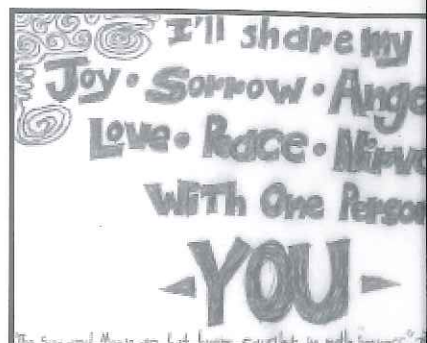 I'll share my
Joy • Sorrow • Ange
Love • Peace • Nirva
With One Person
YOU
The